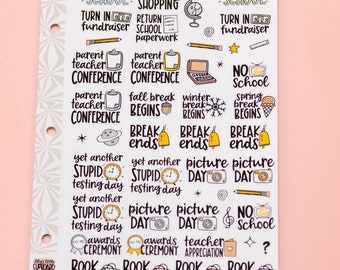 SCHOOL
SHOPPING
SCHOOL
TURN IN
fundraiser
RETURN
SCHOOL
paperwork
TURN IN
fundraiser
parent
teacher
CONFERENCE
parent
teacher
CONFERENCE
NO
School
parent
teacher
CONFERENCE
fall break
BEGINS
winter
break
BEGINS
spring
break
BEGINS
BREAK
ends
BREAK
ends
BREAK
ends
yet another
STUPID
testing day
yet another
STUPID
testing day
picture
DAY
picture
DAY
yet another
STUPID
testing day
picture
DAY
picture
DAY
NO
School
awards
CEREMONY
awards
CEREMONY
teacher
APPRECIATION
?
BOOK
BOOK
BOOK
BOOK
CUPBOARD